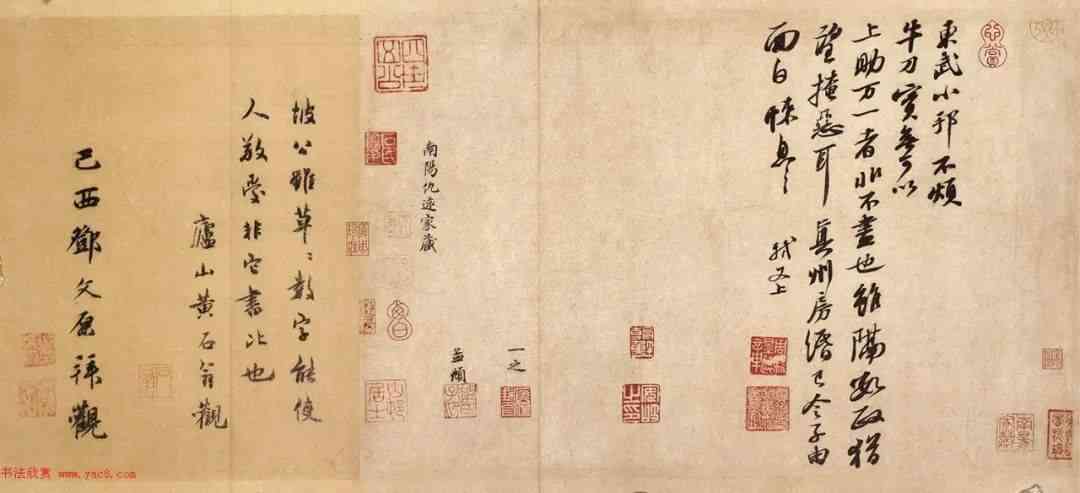 東武小邦不煩
牛刀實無可以
上助万一者非不盡也雖隔數政猶
望掩惡耳 真州房緡已令子由
面白悚息〻 軾又上
一之
孟頫
南陽仇遠家藏
坡公雖草〻數字能使
人敬愛非它書比也
廬山黄石翁觀
己酉鄧文原拜觀
书法欣赏 www.yac8.com